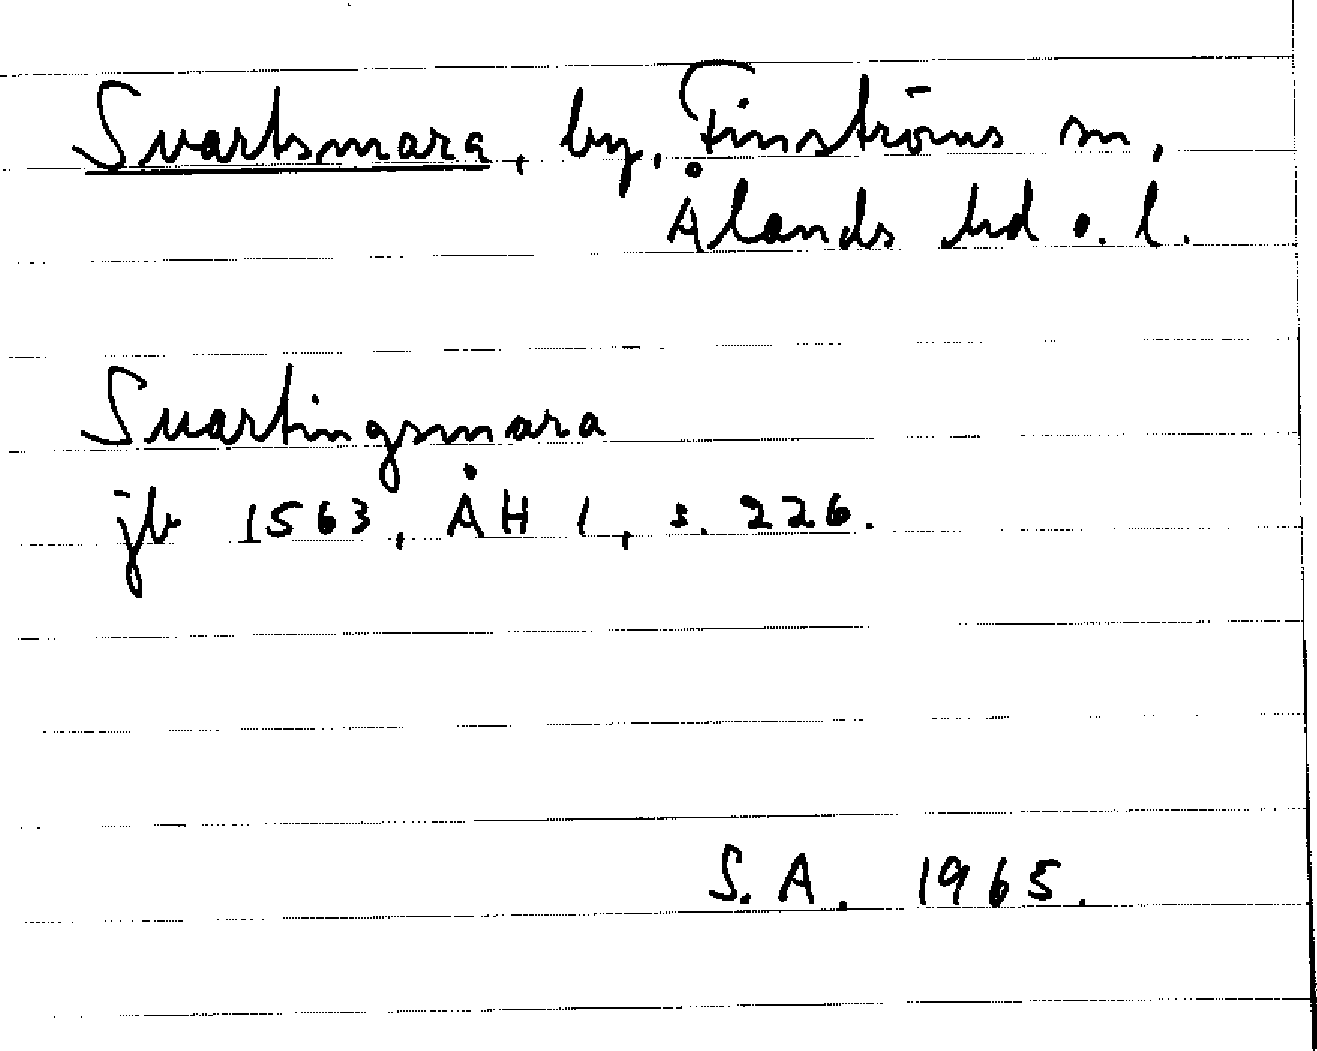 Svartsmara, by, Finströms sn,
Ålands hd o. l.
Suartingsmara
jb 1563, ÅH 1, s. 226.
S. A. 1965.